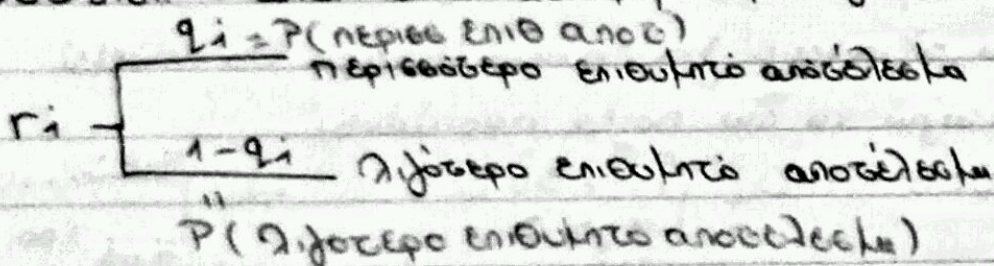 qi = P(περισσ επιθ αποτ)
περισσότερο επιθυμητό αποτέλεσμα
ri
1-qi λιγότερο επιθυμητό αποτέλεσμα
"
P(λιγότερο επιθυμητο αποτελεσμα)